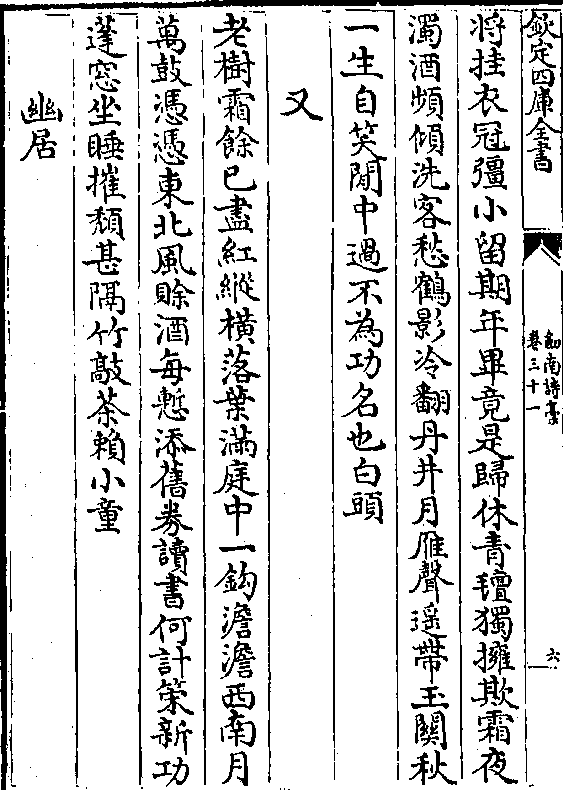 欽定四庫全書
劍南詩稾
卷三十一
六
將挂衣冠彊小留期年畢竟是歸休青氊獨擁欺霜夜
濁酒頻傾洗客愁鶴影冷翻丹井月雁聲遥帶玉關秋
一生自笑閒中過不為功名也白頭
又
老樹霜餘已盡紅縱橫落葉滿庭中一鈎澹澹西南月
萬鼓憑憑東北風賒酒每慙添舊券讀書何計策新功
蓬窓坐睡摧頹甚隔竹敲茶賴小童
幽居